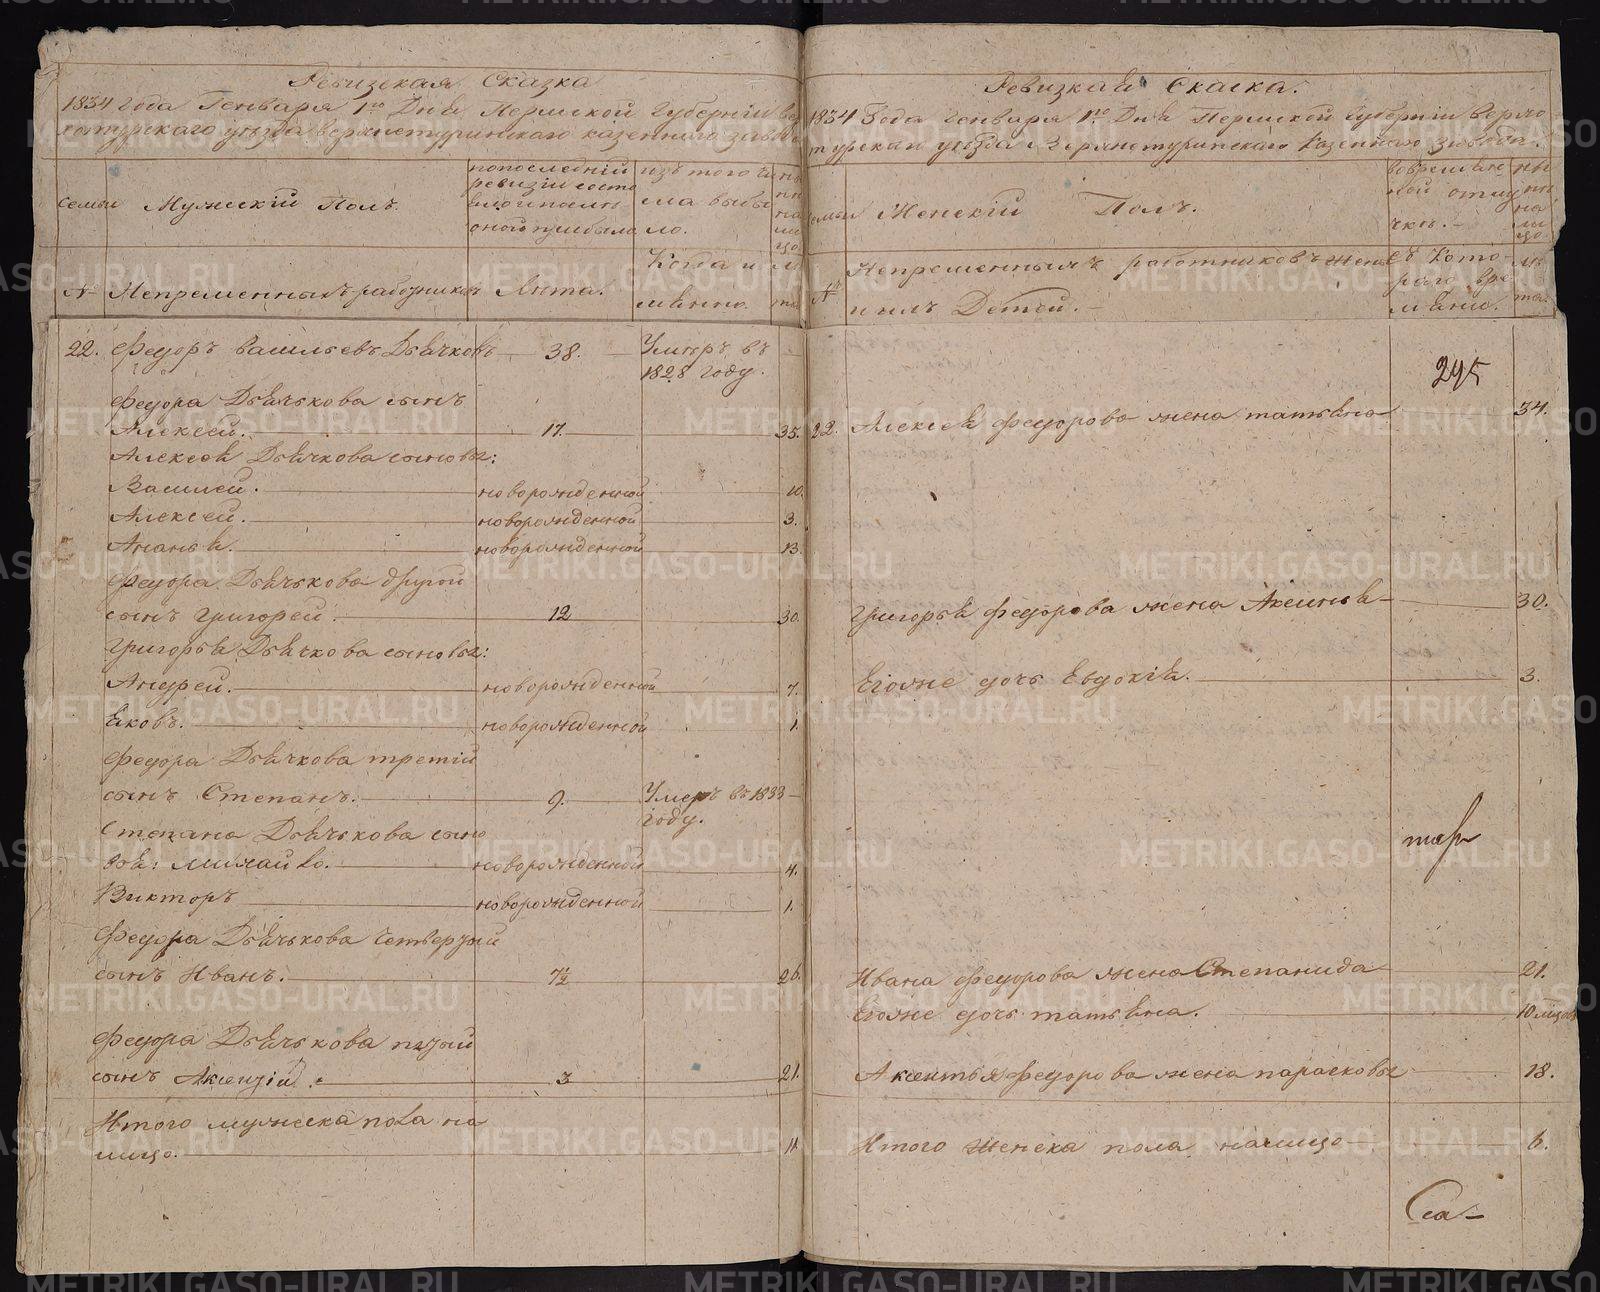 Ревизская Сказка
1834 года Генваря 1го Дня Пермской Губернии вер
хотурскаго уезда верхнетуринскаго казеннаго завода
семьи
Мужеский Полъ.
попоследней
ревизии состо
яло и после
оного прибыло
изъ того чи
сла выбы
ло.
ны
не
на
ли
цо
№
Непременныхъ работниковъ
Лета.
Когда и
мянно
ле
та
22. Федоръ васильевъ Дьячковъ 38. Умеръ въ
1828 году.
Федора Дьячькова сынъ
Алексей. 17. 35.
Алексея Дьячкова сыновья:
Василей. новорожденной 10.
Алексей. новорожденной 3.
Ананья. новорожденной 13.
Федора Дьячькова другой
сынъ григорей. 12 30.
григорья Дьячкова сыновья:
Андрей. новорожденной 7.
Яковъ. новорожденной 1.
Федора Дьячкова третий
сынъ Степанъ. 9. Умеръ въ 1833
году.
Степана Дьячькова сыно
вья: михайло. новорожденной 4.
Викторъ новорожденной 1.
Федора Дьячькова четвертый
сынъ Иванъ. 7½ 26.
Федора Дьячькова пятый
сынъ Аксентий. 3 21.
Итого мужеска пола на
лицо. 11
Ревизкая Скаска.
1834 Года Генваря 1го Дня Пермской Губернии Верхо
турскаго уезда Верхнетуринскаго Казеннаго завода.
семьи
Женский Полъ.
вовременъ
ной отлу
чке.
ны
не
на
ли
цо.
№
Непременныхъ работниковъ жены
и ихъ Детей.
съ Кото
раго вре
мени.
ле
та
295
22. Алексея федорова жена татьяна 34.
Григорья федорова жена Аксинья 30.
Егоже дочь Евдокия. 3.
Ивана федорова жена Степанида 21.
Егоже дочь татьяна. 10 месяцовъ
Аксентья федорова жена парасковья 18.
Итого женска пола налицо 6.
Ска-